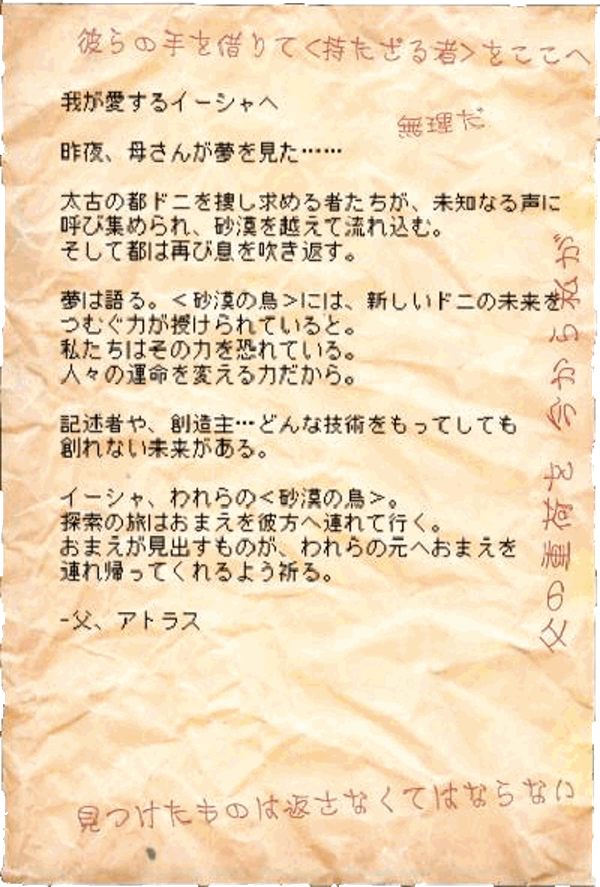 彼らの手を借りて<持たざる者>をここへ
我が愛するイーシャへ
無理だ
昨夜、母さんが夢を見た……
太古の都ドニを捜し求める者たちが、未知なる声に
呼び集められ、砂漠を越えて流れ込む。
そして都は再び息を吹き返す。
夢は語る。＜砂漠の鳥＞には、新しいドニの未来を
つむぐ力が授けられていると。
私たちはその力を恐れている。
人々の運命を変える力だから。
記述者や、創造主…どんな技術をもってしても
創れない未来がある。
イーシャ、われらの＜砂漠の鳥＞。
探索の旅はおまえを彼方へ連れて行く。
おまえが見出すものが、われらの元へおまえを
連れ帰ってくれるよう祈る。
-父、アトラス
父の重荷を今から私が
見つけたものは返さなくてはならない